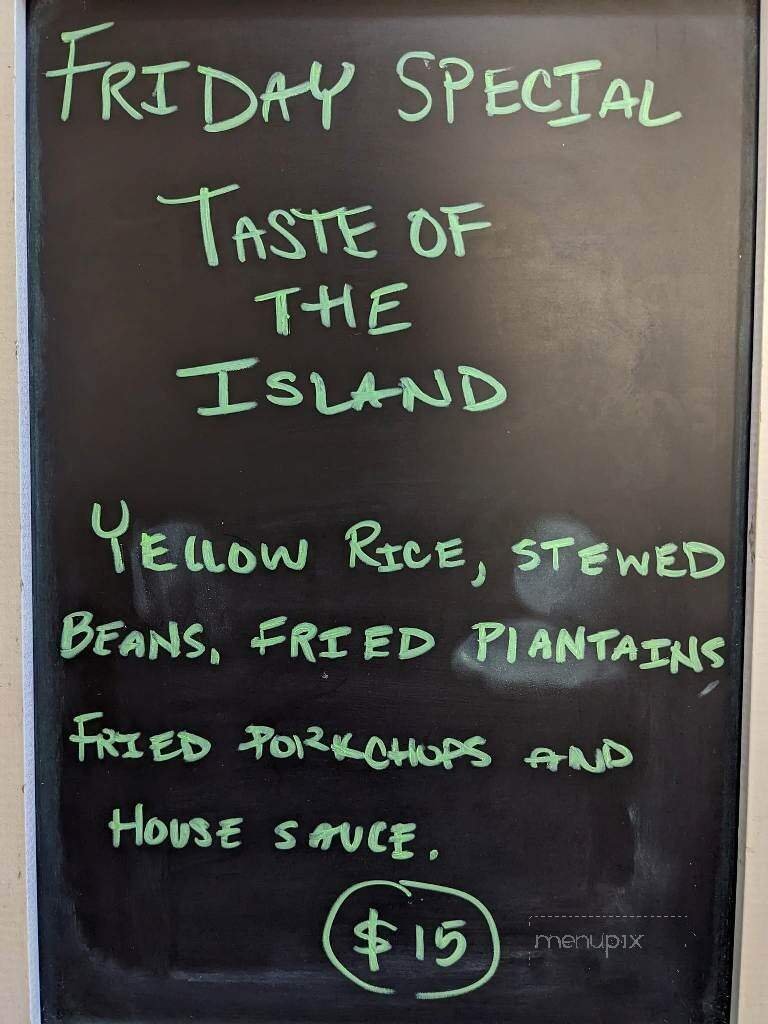 FRIDAY SPECIAL
TASTE OF
THE
ISLAND
YELLOW RICE, STEWED
BEANS, FRIED PLANTAINS
FRIED PORKCHOPS AND
HOUSE SAUCE.
$15
menupix